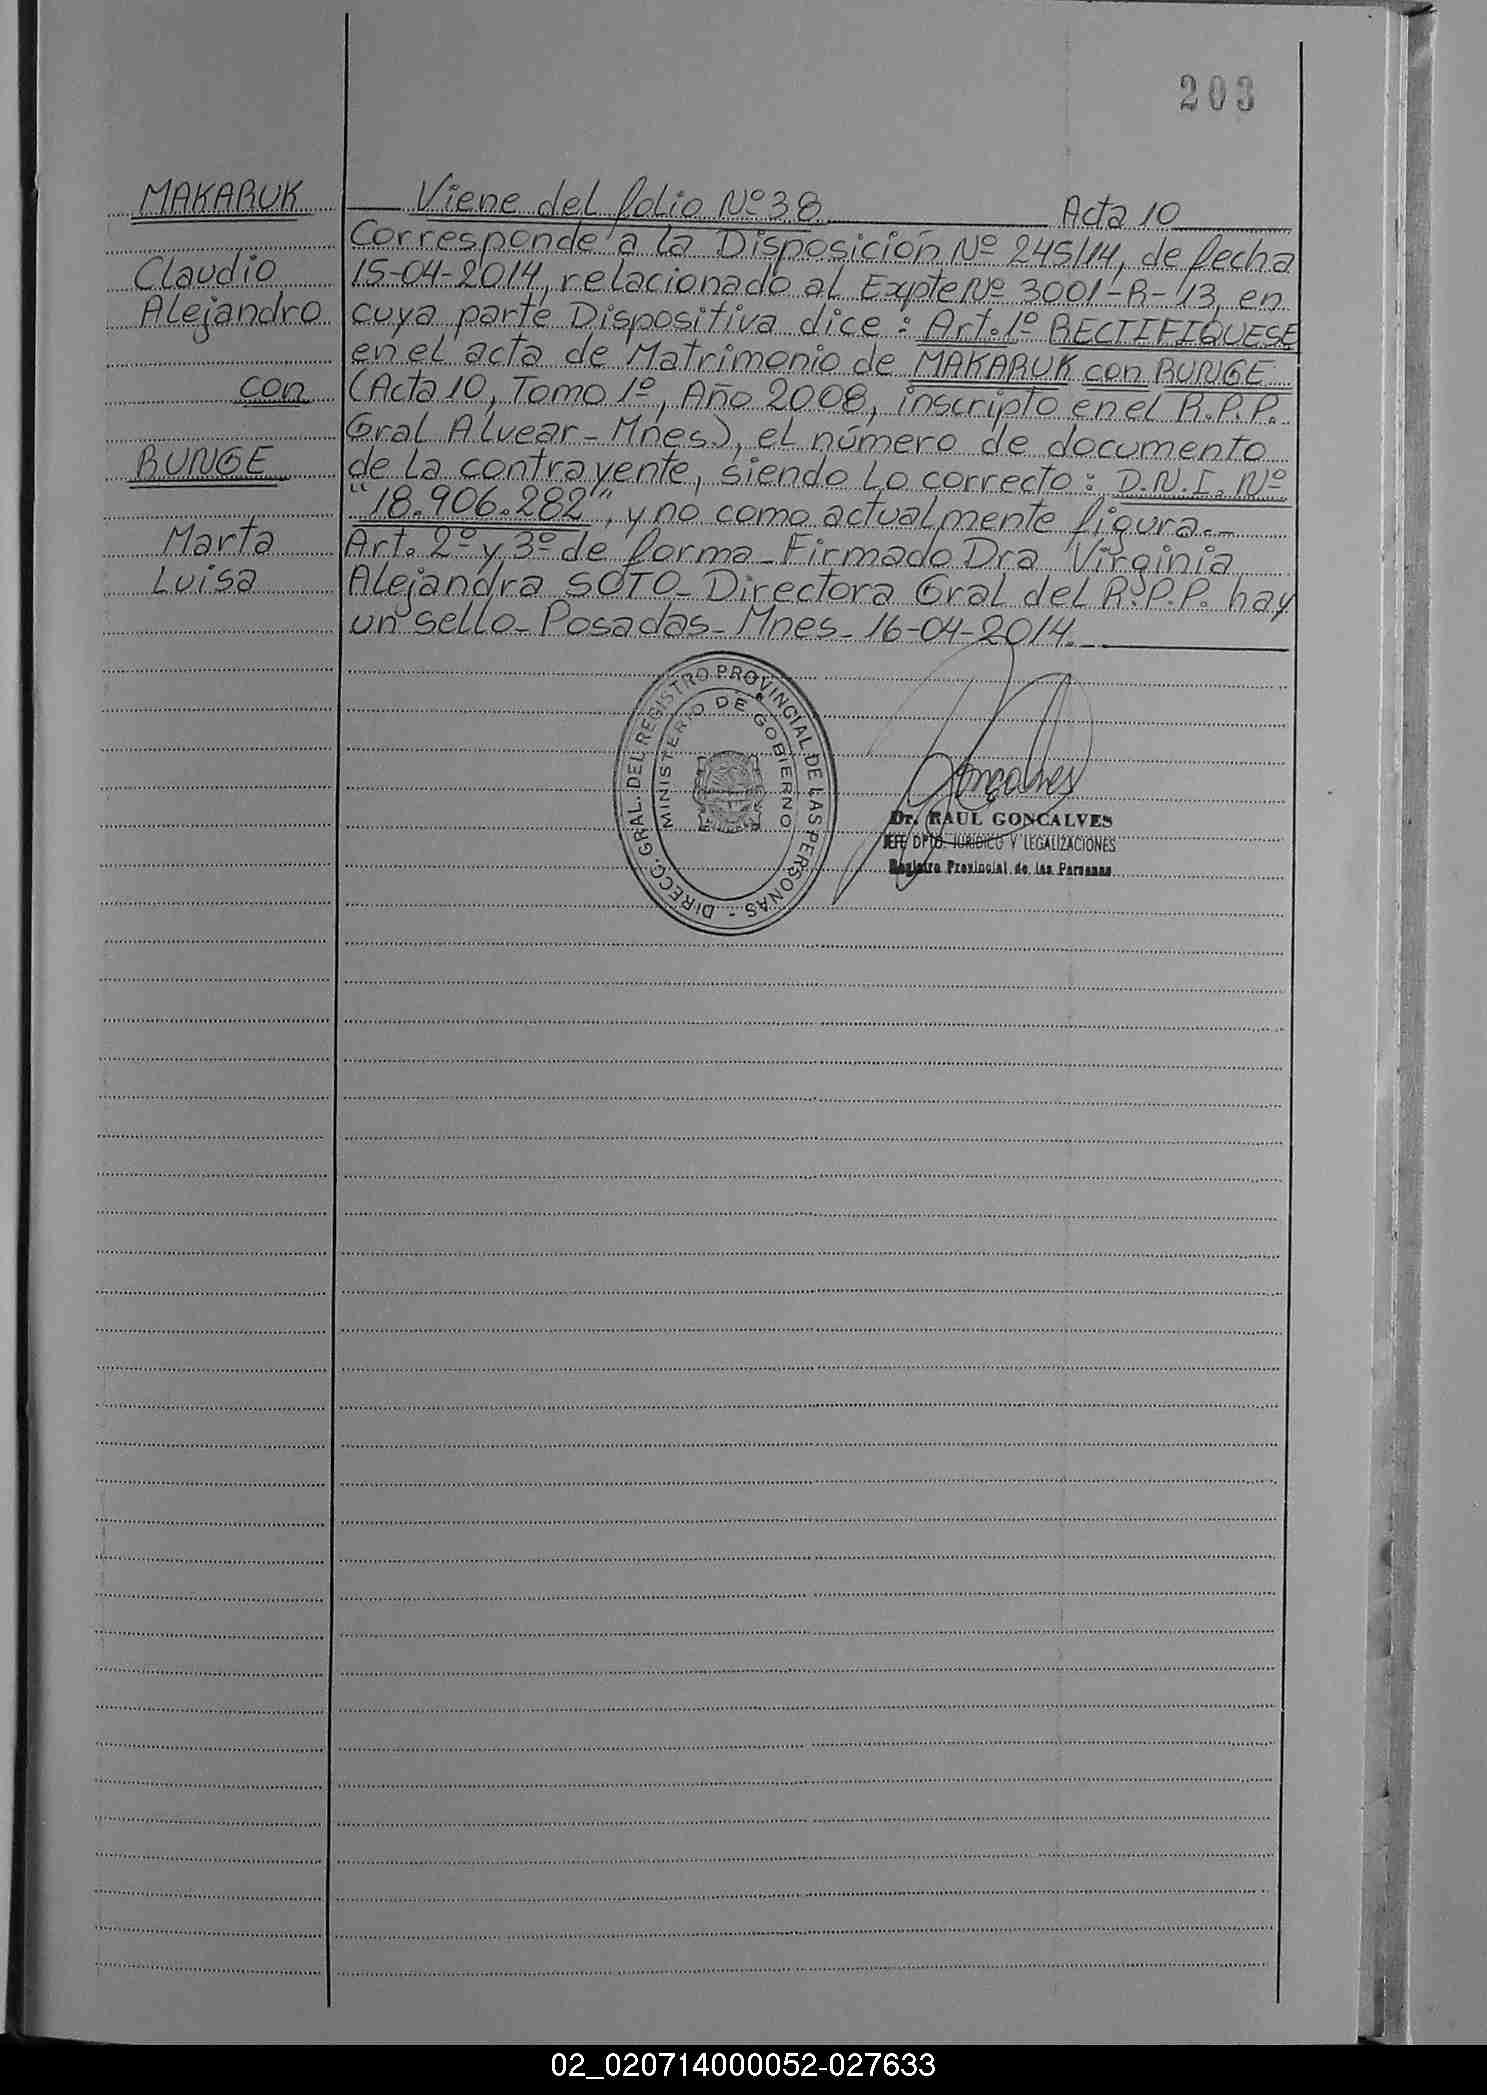 203
MAKARUK
Claudio
Alejandro
con
BUNGE
Marta
Luisa
Viene del folio Nº 38 Acta 10
Corresponde a la Disposición Nº 245/14, de fecha
15-04-2014, relacionado al Expte Nº 3001-R-'13, en
cuya parte Dispositiva dice: Art. 1º RECTIFIQUESE
en el acta de Matrimonio de MAKARUK con BUNGE
(Acta 10, Tomo 1º, Año 2008, inscripto en el R.P.P.
Gral Alvear - Mnes), el número de documento
de la contrayente, siendo lo correcto: D.N.I. Nº
"18.906.282", y no como actualmente figura.-
Art. 2º y 3º de forma - Firmado Dra Virginia
Alejandra SOTO - Directora Gral del R.P.P. hay
un sello - Posadas - Mnes - 16-04-2014.-
DIRECC. GRAL. DEL REGISTRO PROVINCIAL DE LAS PERSONAS -
MINISTERIO DE GOBIERNO
Goncalves
Dr. RAUL GONCALVES
JEFE DPTO. JURIDICO Y LEGALIZACIONES
Registro Provincial de las Personas
02_020714000052-027633